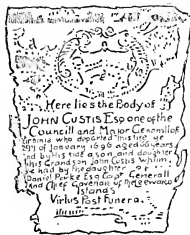 Here lies the Body of
JOHN CUSTIS Esq one of the
Councill and Major Generall of
Virginia who departed this life ye
29th of January 1696 aged years
and by his side a son and daughter
of his Grandson John Custis whom
he had by the daughter of
Daniel Parke Esq Capt Generall
And Chief Govenor of the Leeward
Islands
Virtus Post Funera.